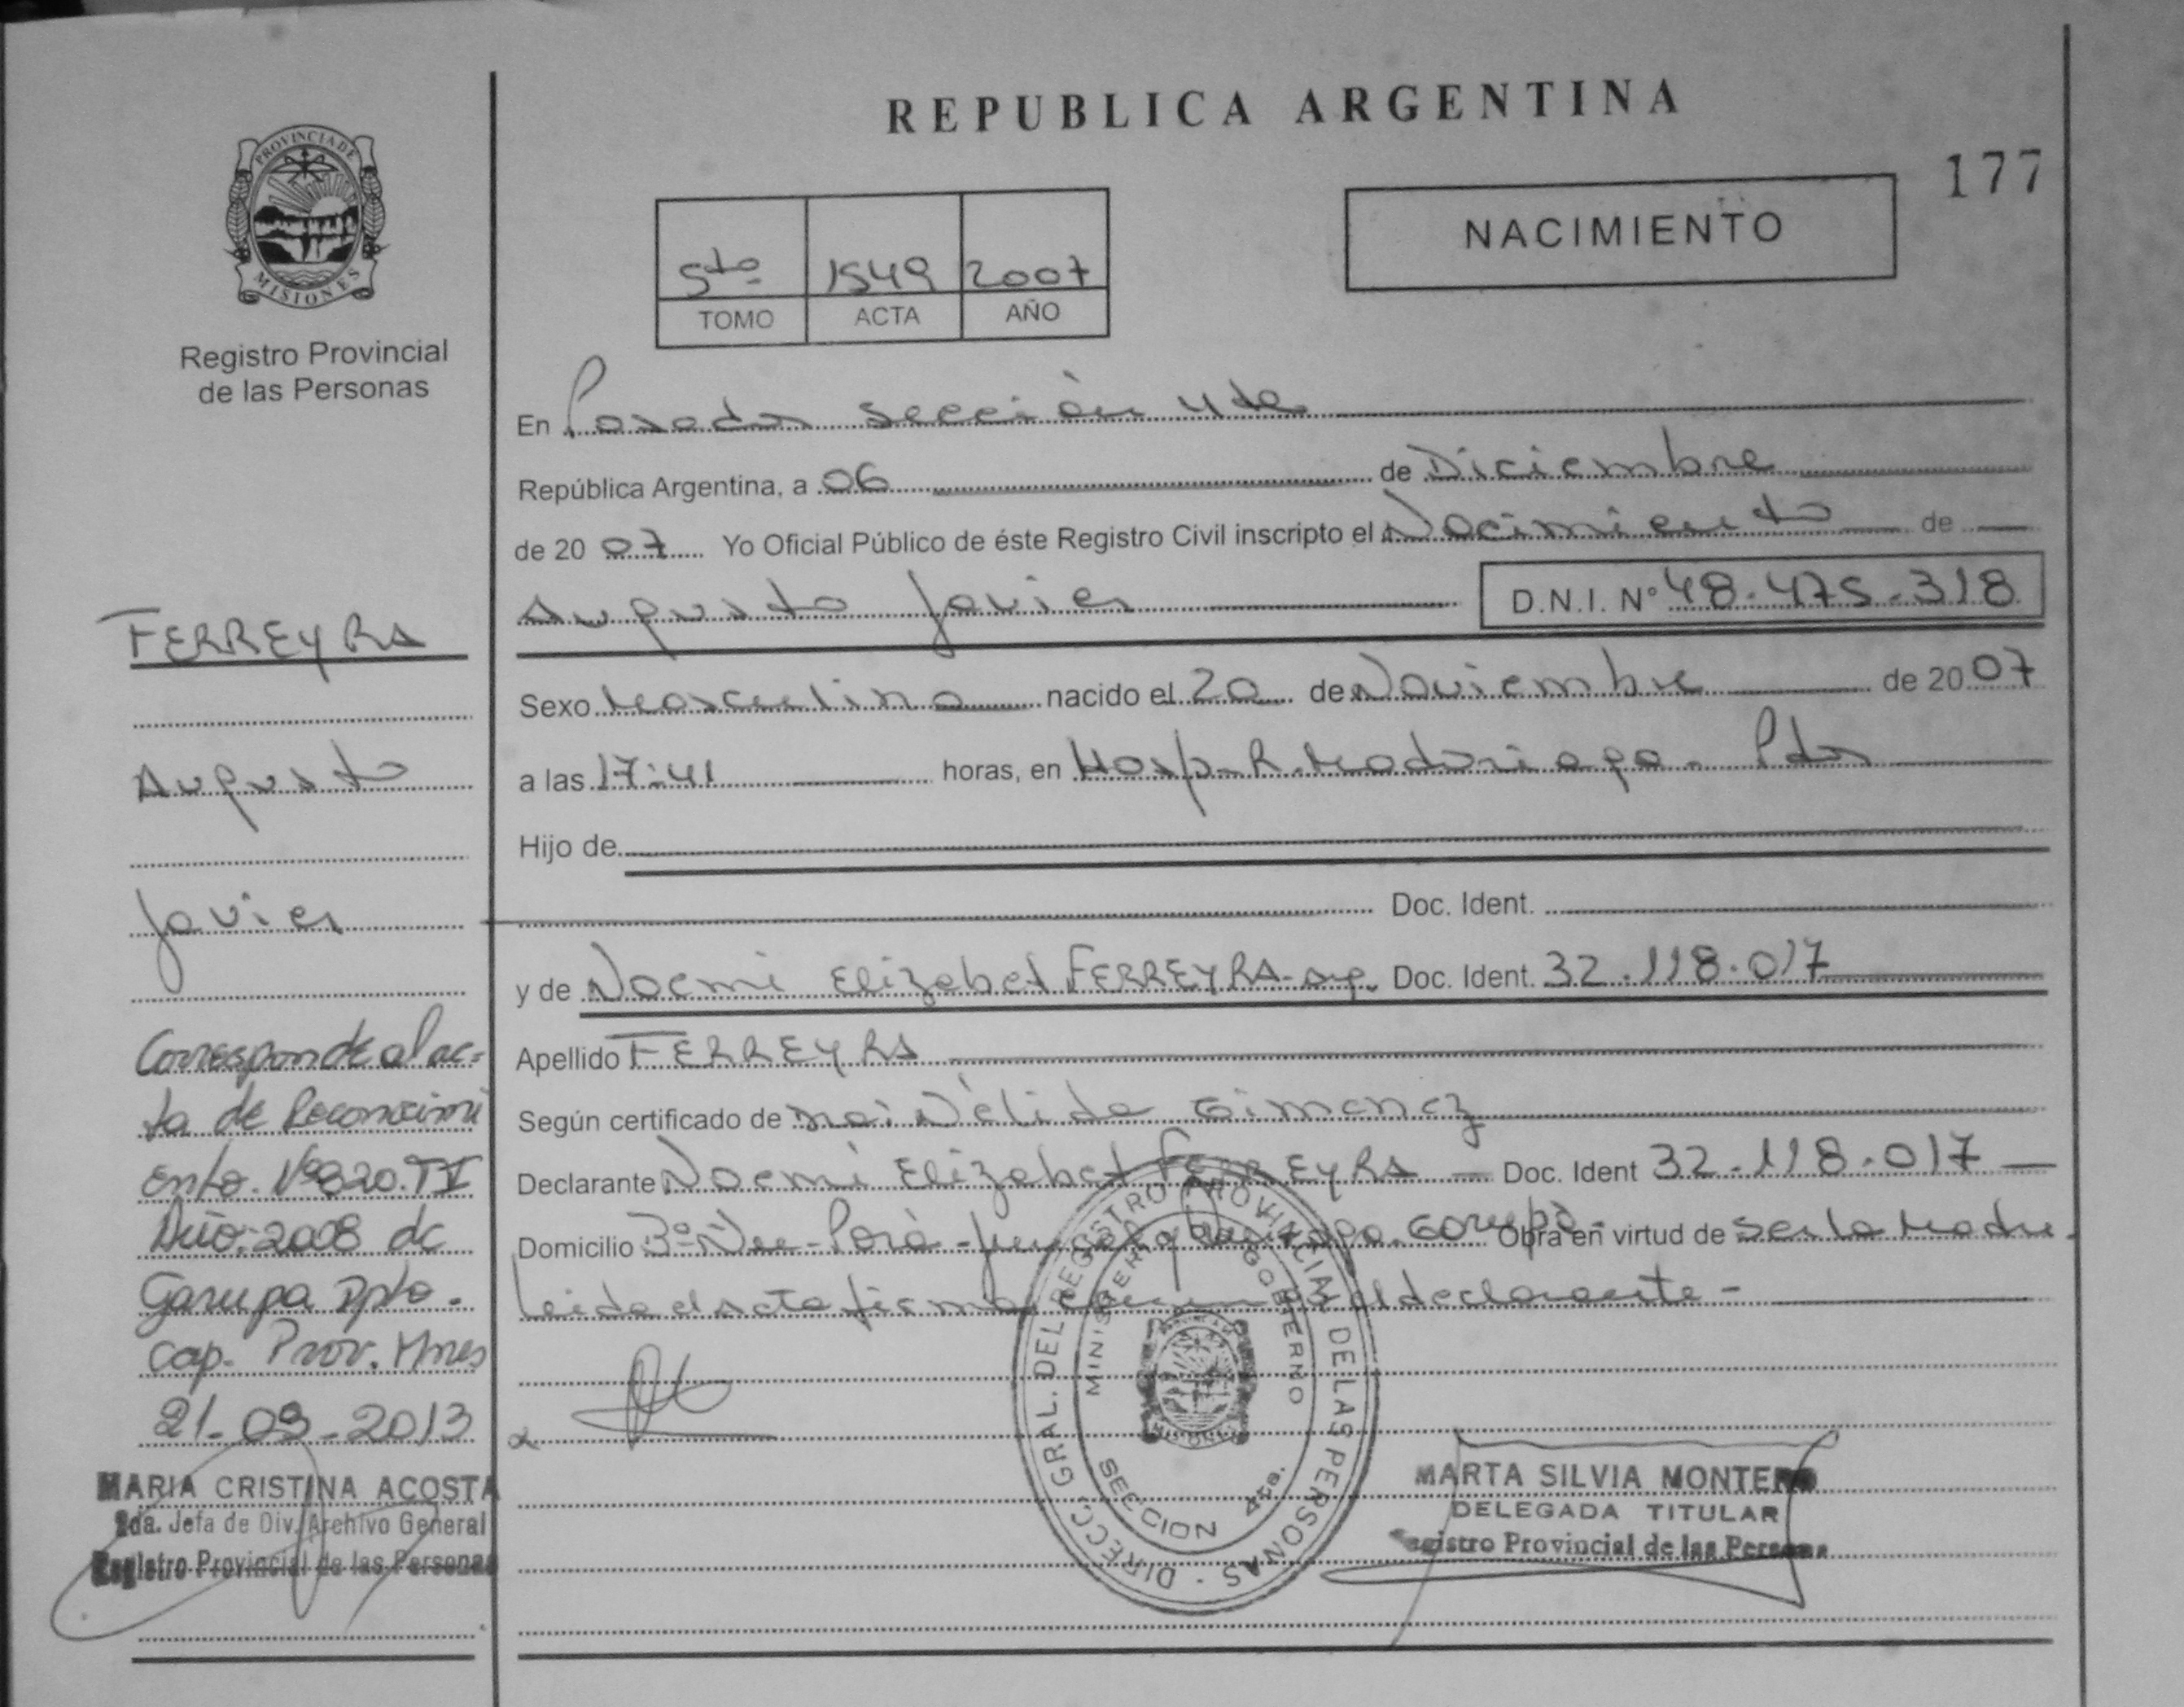 REPUBLICA ARGENTINA
177
NACIMIENTO
5to 1549 2007
TOMO ACTA AÑO
PROVINCIA DE
MISIONES
Registro Provincial
de las Personas
En Posadas sección 4ta
República Argentina, a 06 de Diciembre
de 2007 Yo Oficial Público de éste Registro Civil inscripto el Nacimiento de
Augusto Javier D.N.I. Nº 48.475.318
Sexo Masculino nacido el 20 de Noviembre de 2007
a las 17:41 horas, en Hosp. R. Madariaga - Pdas
Hijo de
Doc. Ident.
y de Noemi Elizabet FERREYRA-arg. Doc. Ident. 32.118.017
Apellido FERREYRA
Según certificado de Nélida Gimenez
Declarante Noemi Elizabet FERREYRA Doc. Ident 32-118.017
Domicilio Garupá - Obra en virtud de ser la Madre.
Leida el acta firma el declarante -
FERREYRA
Augusto
Javier
Corresponde al ac=
ta de Reconocimi
ento. Nº 820. T V
Año: 2008 de
Garupa Dpto.
Cap. Prov. Mnes
21-09-2013
MARIA CRISTINA ACOSTA
2da. Jefa de Div. Archivo General
Registro Provincial de las Personas
DIRECC. GRAL. DEL REGISTRO PROVINCIAL DE LAS PERSONAS
MINISTERIO GOBIERNO
MISIONES
SECCION 4ta.
MARTA SILVIA MONTERO
DELEGADA TITULAR
Registro Provincial de las Personas